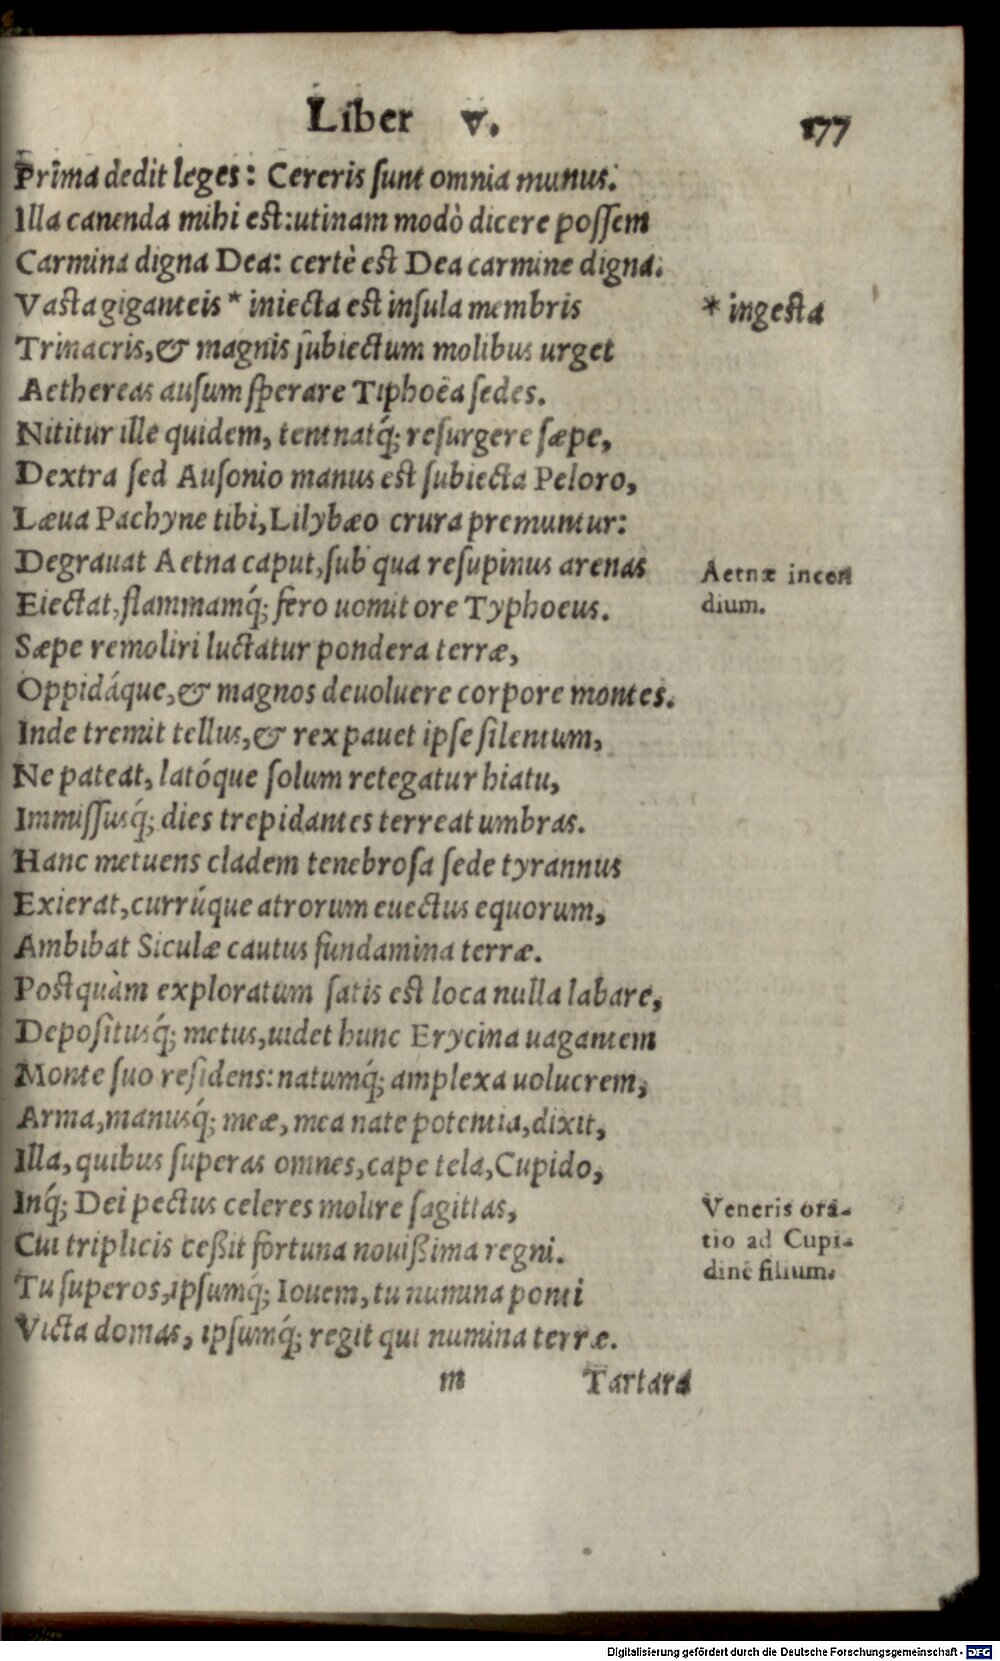 Liber v. 177
Prima dedit leges: Cereris ſunt omnia munus.
Illa canenda mihi est: utinam modò dicere poſſem
Carmina digna Dea: certè est Dea carmine digna.
Vasta giganteis * iniecta est inſula membris
* ingesta
Trinacris, & magnis ſubiectum molibus urget
Aethereas auſum ſperare Tiphoëa ſedes.
Nititur ille quidem, tentnatq́; reſurgere ſæpe,
Dextra ſed Auſonio manus est ſubiecta Peloro,
Læua Pachyne tibi, Lilybæo crura premuntur:
Degrauat Aetna caput, ſub qua reſupinus arenas
Eiectat, flammamq́; fero uomit ore Typhoeus.
Aetnæ incen
dium.
Sæpe remoliri luctatur pondera terræ,
Oppidáque, & magnos deuoluere corpore montes.
Inde tremit tellus, & rex pauet ipſe ſilentum,
Ne pateat, latóque ſolum retegatur hiatu,
Immiſſusq́; dies trepidantes terreat umbras.
Hanc metuens cladem tenebroſa ſede tyrannus
Exierat, currúque atrorum euectus equorum,
Ambibat Siculæ cautus fundamina terræ.
Postquàm exploratum ſatis est loca nulla labare,
Depoſitusq́; metus, uidet hunc Erycina uagantem
Monte ſuo reſidens: natumq́; amplexa uolucrem,
Arma, manusq́; meæ, mea nate potentia, dixit,
Illa, quibus ſuperas omnes, cape tela, Cupido,
Inq́; Dei pectus celeres molire ſagittas,
Cui triplicis ceßit fortuna nouißima regni.
Veneris ora-
tio ad Cupi-
dinē filium.
Tu ſuperos, ipſumq́; Iouem, tu numina ponti
Victa domas, ipſumq́; regit qui numina terræ.
m Tartara
Digitalisierung gefördert durch die Deutsche Forschungsgemeinschaft - DFG